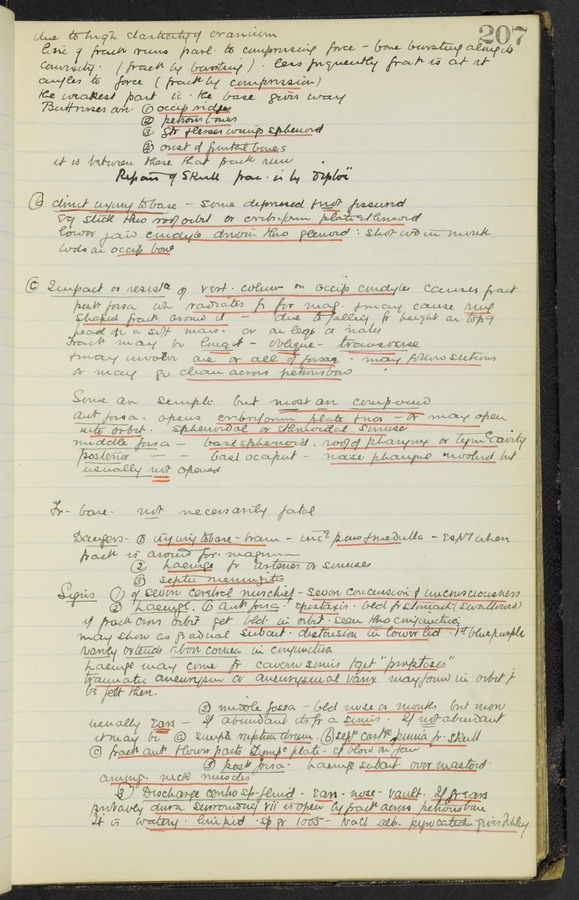 207
due to high elasticity of cranium
line of fract runs parl. to compressing force - bone bursting along its
convexity. (fract by bursting). less frequently fract is at rt
angles to force (fract by compression)
the weakest part in the base gives way
Buttresses are. ① occip ridges
② petrous bones
③ Gtr & lesser wings sphenoid
④ orbit of frontal bones
it is between these that fract runs
Repair of Skull frac. is by Diploë
ⓑ direct injury to base - some depressed & not fissured
eg stick thro roof orbit or cribriform plate ethmoid
lower jaw condyle driven thro glenoid: shot wd in mouth
wds on occip bone
ⓒ Impact or resistce of vert. column on occip condyles causes fract
post fossa wh radiates fr for mag. & may cause ring
shaped fract around it - due to falling fr height on top of
head on a soft mass. or on legs or nates
Fract may be longt - oblique - transverse
& may involve one or all of fossae - may follow sutures
or may go clean across petrous bone
Some are simple but most are compound
ant fossa. opens cribriform plate & nose - or may open
into orbit. sphenoidal or ethmoidal sinuses
middle fossa - basisphenoid. roof of pharynx or tymc cavity
posterior - - basi occiput - naso pharynx involved but
usually not opened
Fr. base. not necessarily fatal
Dangers - ① injury to base - brain - incl pons & medulla - espy when
fract is around for. magnum
② haemge fr arteries or sinuses
③ septic meningitis
Signs ① of severe cerebral mischief - severe concussion & unconsciousness
② haemge. ① ant fossa. epistaxis. bld fr stomach (swallowed)
if fract cross orbit get bld in orbit. seen thro conjunctiva
may show as gradual subcut. distension in lower lid. 1st blue purple
rarely extends above cornea in conjunctiva
haemge may come fr cavern sinus & get "proptosis"
traumatic aneurysm or aneurysmal varix may form in orbit &
be felt then.
② middle fossa - bld nose or mouth but more
usually ears - if abundant its fr a sinus. If not abundant
it may be ⓐ simple rupture drum. ⓑ fr skull
ⓒ fract ant & lower parts Tympc plate - cf blow on jaw
③ post fossa - haemge subcut over mastoid.
among neck muscles
3) Discharge cerebro sp fluid - ears - nose - vault. If fr ears
probably dura surrounding VII is open by fract across petrous bone
It is watery. limpid. sp gr 1005 - NaCl alb. pyrocatechin gives Fehling